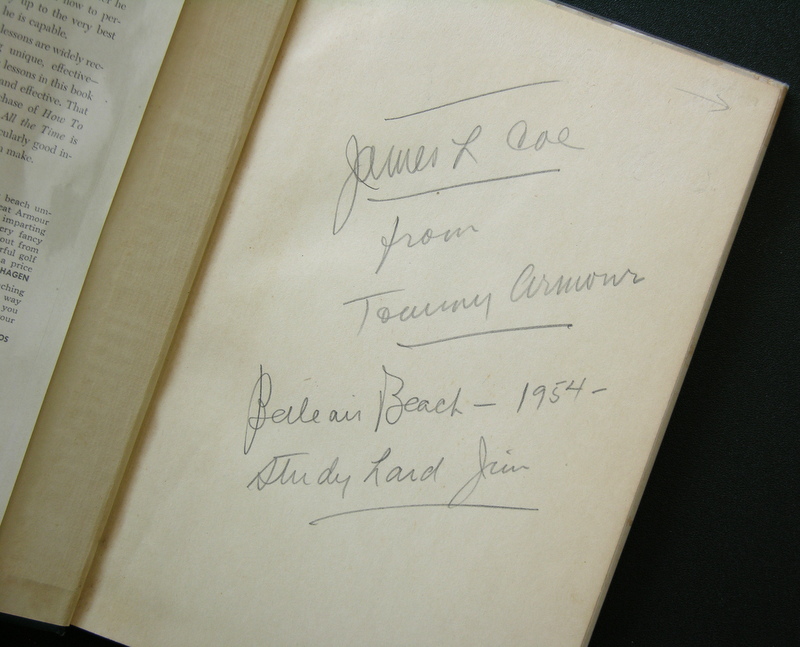 he
how to per-
up to the very best
he is capable.
lessons are widely rec-
unique, effective—
lessons in this book
and effective. That
chase of How To
All the Time is
cularly good in-
make.
beach um-
eat Armour
imparting
ery fancy
out from
rful golf
a price
HAGEN
ching
way
you
our
OS
James L Coe
from
Tommy Armour
Belleair Beach – 1954 –
Study hard Jim